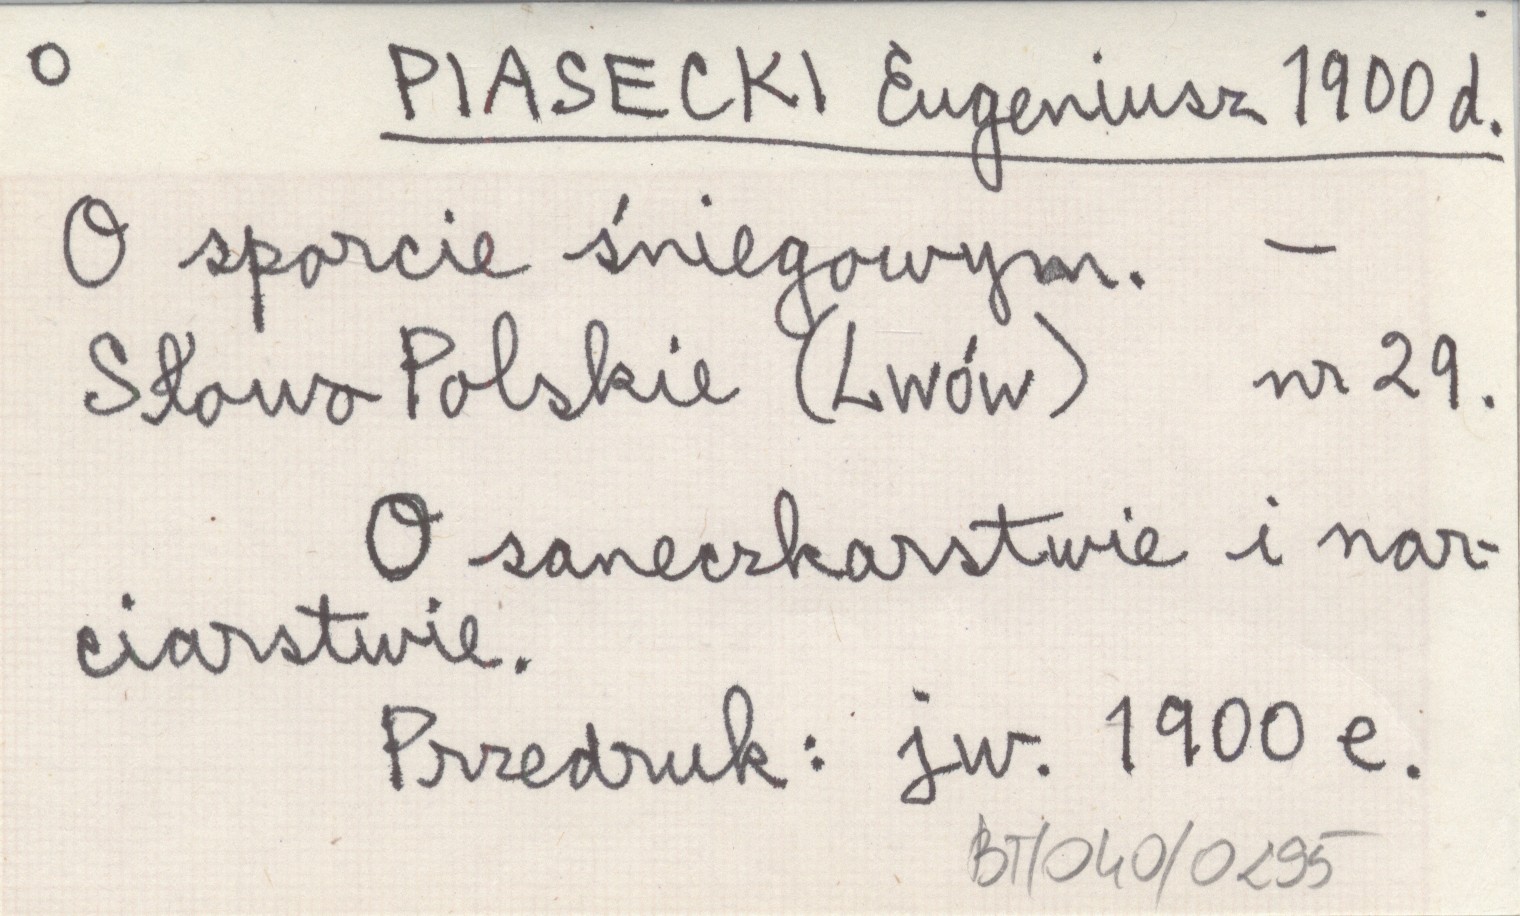 o PIASECKI Eugeniusz 1900 d.
O sporcie śniegowym. –
Słowo Polskie (Lwów) nr 29.
O saneczkarstwie i nar-
ciarstwie.
Przedruk: jw. 1900 e.
BT/040/0295